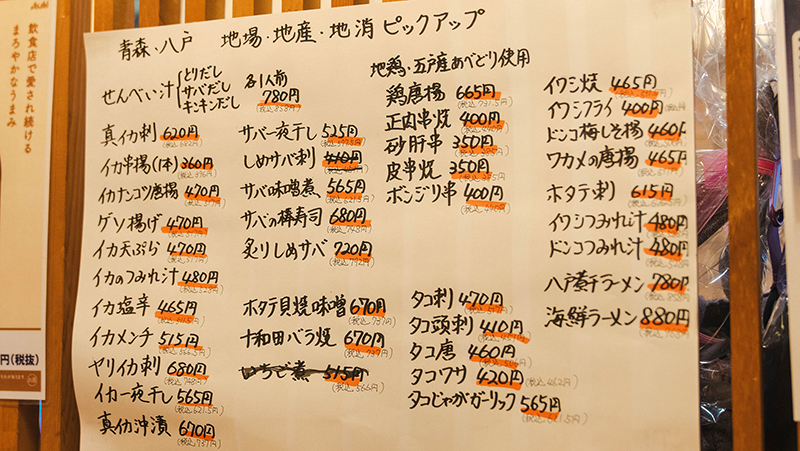 Asahi
飲食店で愛され続ける
まろやかなうまみ
円(税抜)
青森・八戸 地場・地産・地消 ピックアップ
せんべい汁 とりだし サバだし キンキンだし 各1人前 780円
真イカ刺 620円
イカ串揚(1本) 360円
イカナンコツ唐揚 470円
ゲソ揚げ 470円
イカ天ぷら 470円
イカのつみれ汁 480円
イカ塩辛 465円
イカメンチ 515円
ヤリイカ刺 680円
イカ一夜干し 565円
真イカ沖漬 670円
サバ一夜干し 525円
しめサバ刺 410円
サバ味噌煮 565円
サバの棒寿司 680円
炙りしめサバ 720円
ホタテ貝焼味噌 670円
十和田バラ焼 670円
いちご煮 515円
地鶏・五戸産あべどり使用
鶏唐揚 665円
正肉串焼 400円
砂肝串 350円
皮串焼 350円
ボンジリ串 400円
タコ刺 470円
タコ頭刺 410円
タコ唐 460円
タコワサ 420円
タコじゃがガーリック 565円
イワシ焼 465円
イワシフライ 400円
ドンコ梅しそ揚 460円
ワカメの唐揚 465円
ホタテ刺 615円
イワシつみれ汁 480円
ドンコつみれ汁 480円
八戸煮干ラーメン 780円
海鮮ラーメン 880円